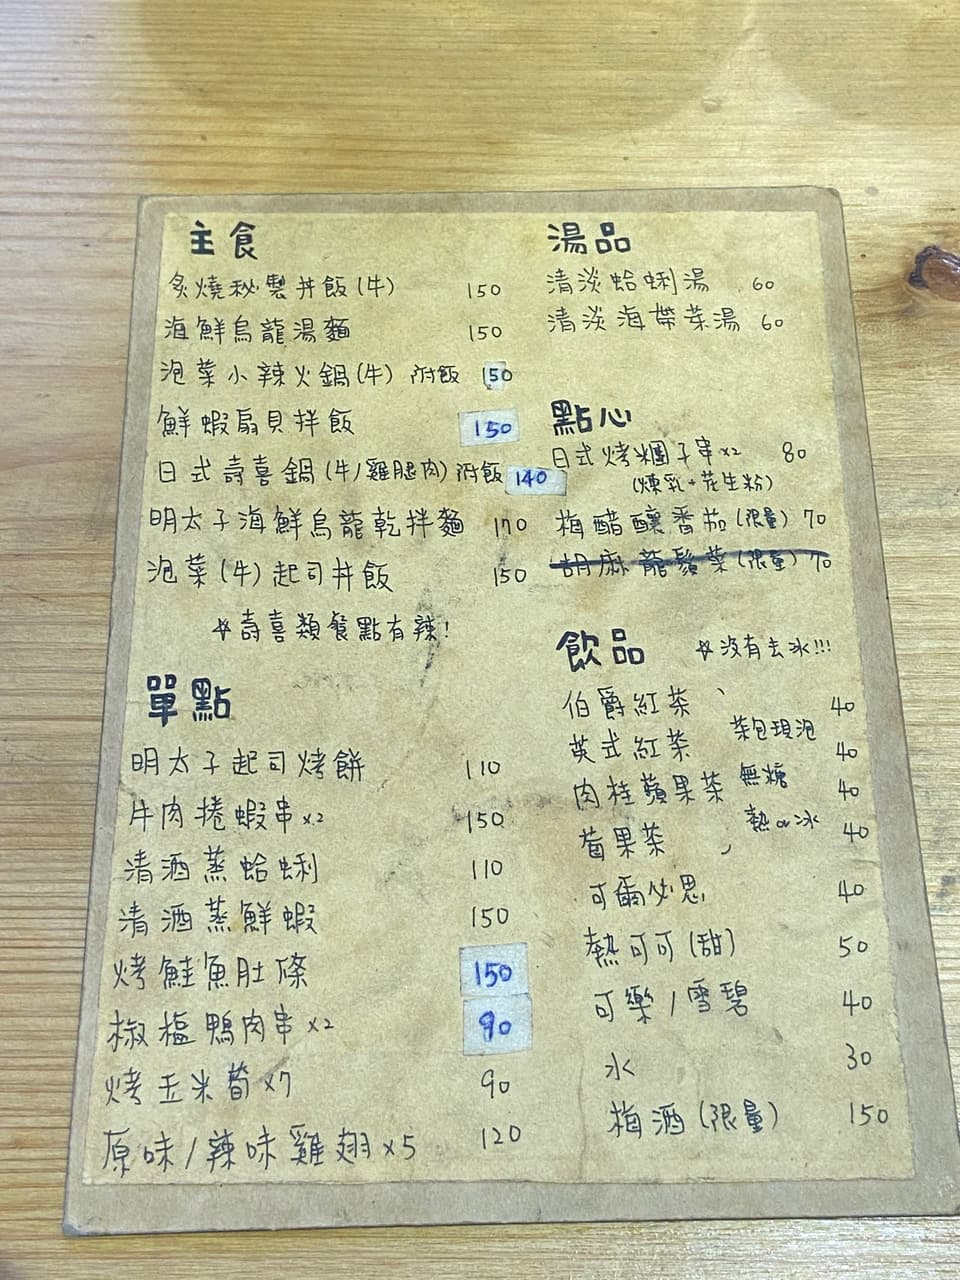 主食
炙燒秘製丼飯(牛) 150
海鮮烏龍湯麵 150
泡菜小辣火鍋(牛) 附飯 150
鮮蝦扇貝拌飯 150
日式壽喜鍋(牛/雞腿肉)附飯 140
明太子海鮮烏龍乾拌麵 170
泡菜(牛)起司丼飯 150
☆壽喜類餐點有辣!
單點
明太子起司烤餅 110
牛肉捲蝦串x2 150
清酒蒸蛤蜊 110
清酒蒸鮮蝦 150
烤鮭魚肚條 150
椒樞鴨肉串x2 90
烤玉米筍x7 90
原味/辣味雞翅x5 120
湯品
清淡蛤蜊湯 60
清淡海帶菜湯 60
點心
日式烤糰子串x2 80
(煉乳+花生粉)
梅醋釀番茄(限量) 70
胡麻龍鬚菜(限量) 70
飲品 ☆沒有去冰!!!
伯爵紅茶 40
茶包現泡
英式紅茶 40
肉桂蘋果茶 40
無糖
熱or冰
莓果茶 40
可爾必思 40
熱可可(甜) 50
可樂/雪碧 40
水 30
梅酒(限量) 150